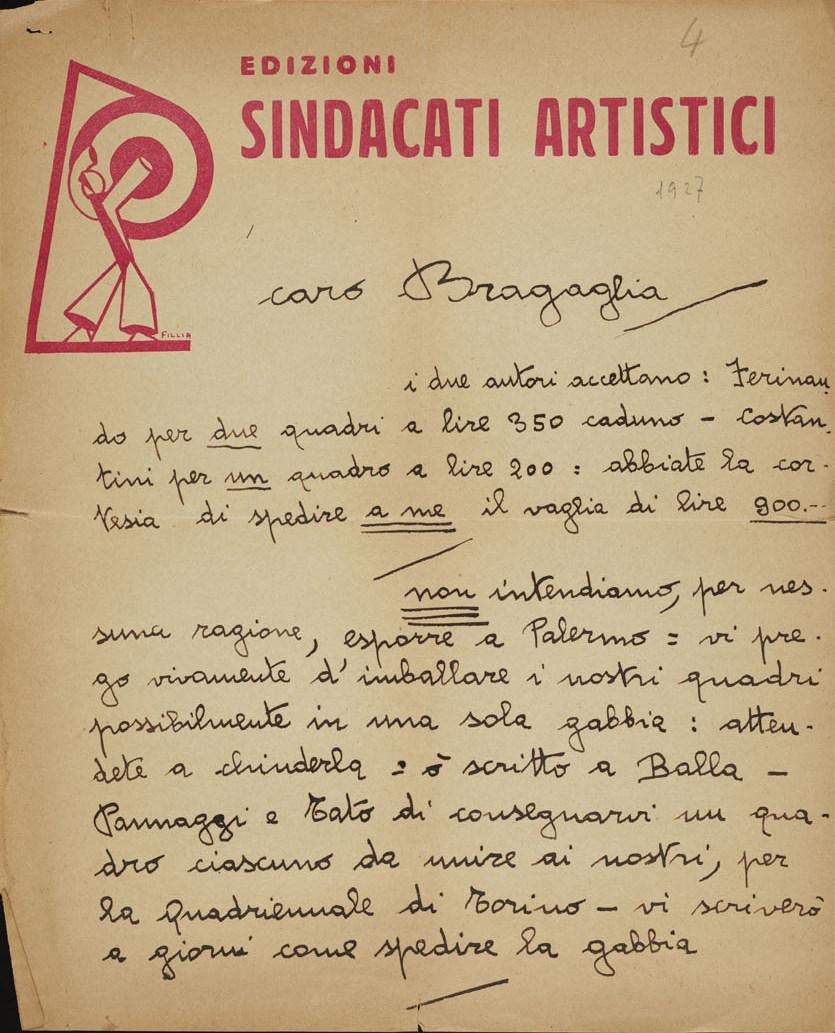 4
EDIZIONI
SINDACATI ARTISTICI
1927
FILLIA
caro Bragaglia
i due autori accettano : Ferinan
do per due quadri a lire 350 caduno – Costan.
tini per un quadro a lire 200 : abbiate la cor-
tesia di spedire a me il vaglia di lire 900.--
non intendiamo, per nes-
suna ragione, esporre a Palermo = vi pre-
go vivamente d'imballare i nostri quadri
possibilmente in una sola gabbia : atten-
dete a chiuderla = ò scritto a Balla –
Pannaggi e Tato di consegnarvi un qua-
dro ciascuno da unire ai nostri, per
la Quadriennale di Torino – vi scriverò
a giorni come spedire la gabbia